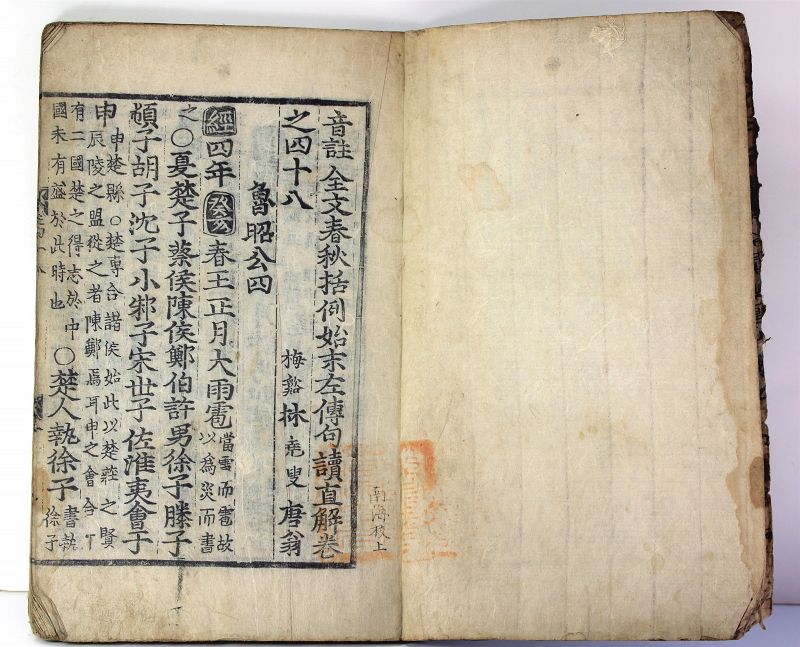 音註全文春秋括例始末左傳句讀直解卷
之四十八 梅谿 林堯叟 唐翁
魯昭公四
經四年癸亥春王正月大雨雹當雪而雹故以為災而書
之〇夏楚子蔡侯陳侯鄭伯許男徐子滕子
頓子胡子沈子小邾子宋世子佐淮夷會于
申申楚縣〇楚專合諸侯始此以楚莊之賢辰陵之盟從之者陳鄭焉耳申之會合十
有二國楚之得志於中國未有盛於此時也〇楚人執徐子書執徐子
南海校上